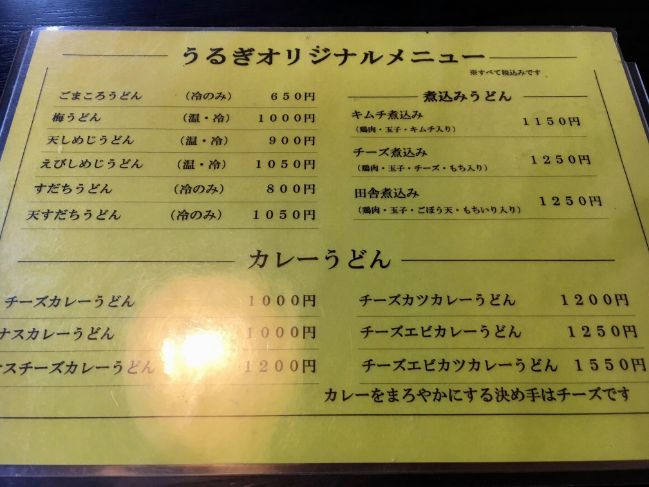 うるぎオリジナルメニュー
※すべて税込みです
ごまころうどん (冷のみ) 650円
梅うどん (温・冷) 1000円
天しめじうどん (温・冷) 900円
えびしめじうどん (温・冷) 1050円
すだちうどん (冷のみ) 800円
天すだちうどん (冷のみ) 1050円
煮込みうどん
キムチ煮込み 1150円
(鶏肉・玉子・キムチ入り)
チーズ煮込み 1250円
(鶏肉・玉子・チーズ・もち入り)
田舎煮込み 1250円
(鶏肉・玉子・ごぼう天・もちいり入り)
カレーうどん
チーズカレーうどん 1000円
ナスカレーうどん 1000円
ナスチーズカレーうどん 1200円
チーズカツカレーうどん 1200円
チーズエビカレーうどん 1250円
チーズエビカツカレーうどん 1550円
カレーをまろやかにする決め手はチーズです